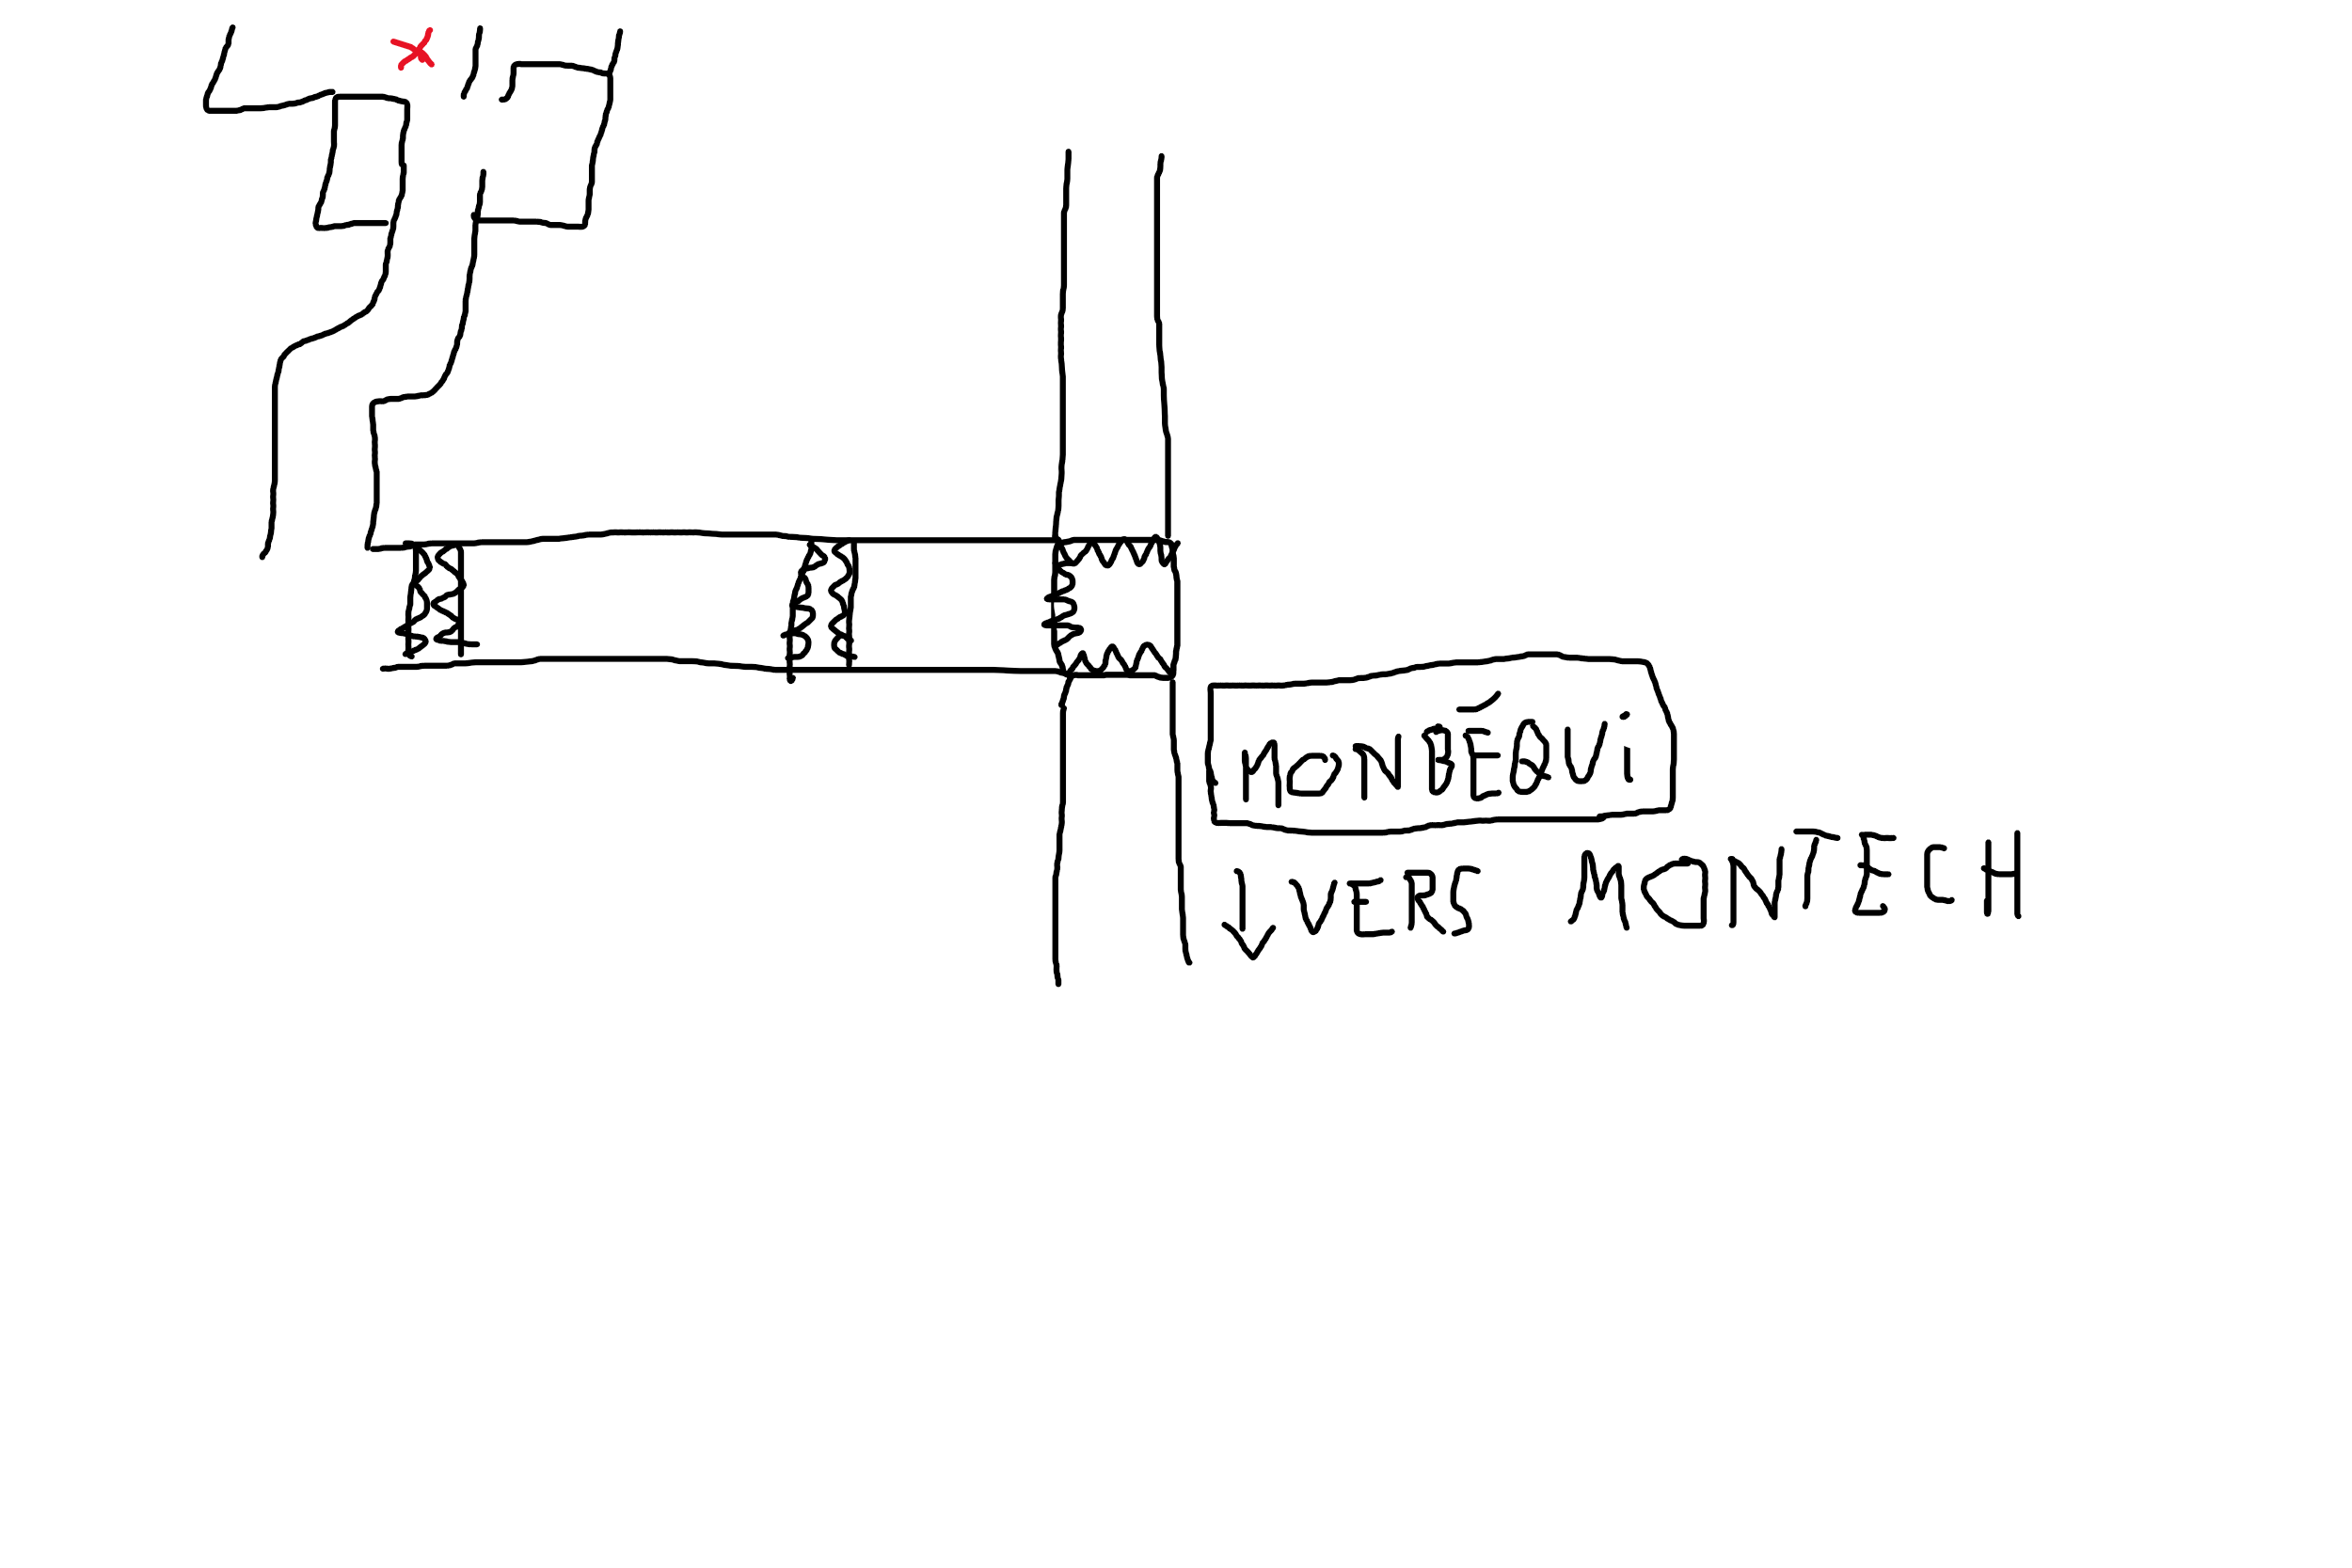 MONBÉQUi
↓ VERS MONTECH